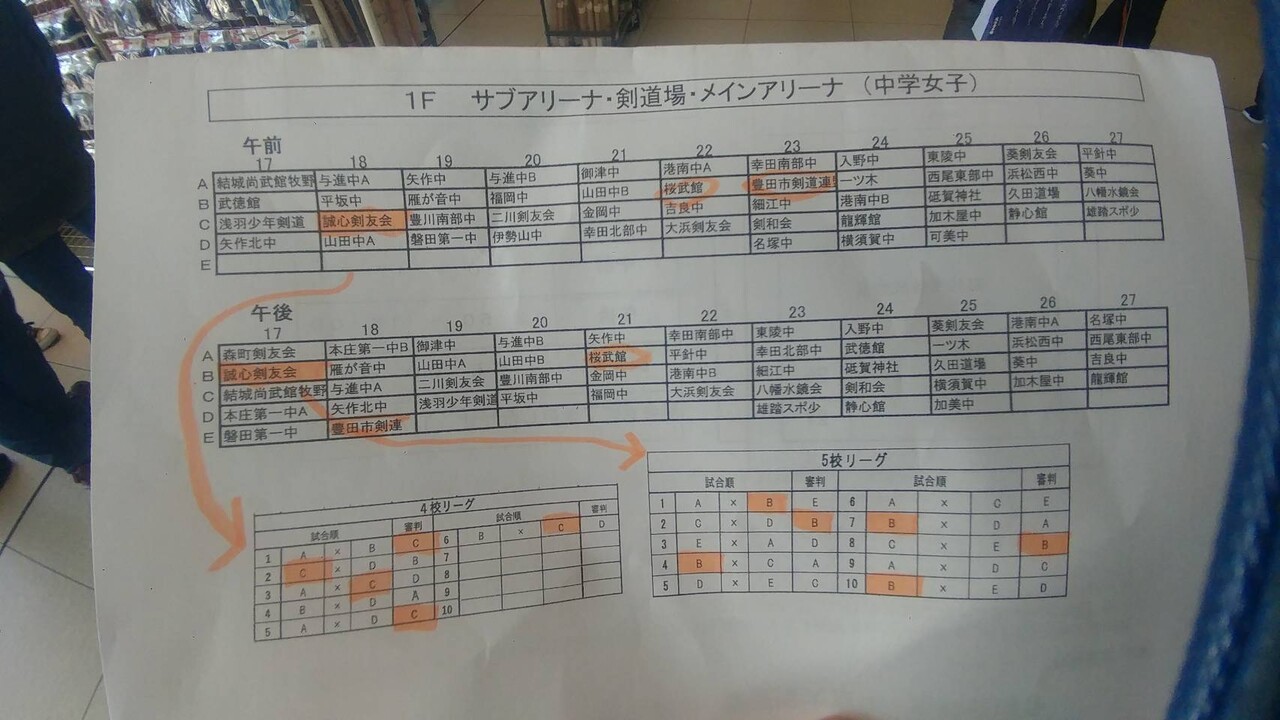 1F サブアリーナ・剣道場・メインアリーナ (中学女子)
午前
17 18 19 20 21 22 23 24 25 26 27
A 結城尚武館牧野 与進中A 矢作中 与進中B 御津中 港南中A 幸田南部中 入野中 東陵中 葵剣友会 平針中
B 武徳館 平坂中 雁が音中 福岡中 山田中B 桜武館 豊田市剣道連 一ツ木 西尾東部中 浜松西中 葵中
C 浅羽少年剣道 誠心剣友会 豊川南部中 二川剣友会 金岡中 吉良中 細江中 港南中B 砥賀神社 久田道場 八幡水鏡会
D 矢作北中 山田中A 磐田第一中 伊勢山中 幸田北部中 大浜剣友会 剣和会 龍輝館 加木屋中 静心館 雄踏スポ少
E 名塚中 横須賀中 可美中
午後
17 18 19 20 21 22 23 24 25 26 27
A 森町剣友会 本庄第一中B 御津中 与進中B 矢作中 幸田南部中 東陵中 入野中 葵剣友会 港南中A 名塚中
B 誠心剣友会 雁が音中 山田中A 山田中B 桜武館 平針中 幸田北部中 武徳館 一ツ木 浜松西中 西尾東部中
C 結城尚武館牧野 与進中A 二川剣友会 豊川南部中 金岡中 港南中B 細江中 砥賀神社 久田道場 葵中 吉良中
D 本庄第一中A 矢作北中 浅羽少年剣道 平坂中 福岡中 大浜剣友会 八幡水鏡会 剣和会 横須賀中 加木屋中 龍輝館
E 磐田第一中 豊田市剣連 雄踏スポ少 静心館 加美中
4校リーグ
試合順 審判 試合順 審判
1 A × B C 6 B × C D
2 C × D B 7
3 A × C D 8
4 B × D A 9
5 A × D C 10
5校リーグ
試合順 審判 試合順 審判
1 A × B E 6 A × C E
2 C × D B 7 B × D A
3 E × A D 8 C × E B
4 B × C A 9 A × D C
5 D × E C 10 B × E D